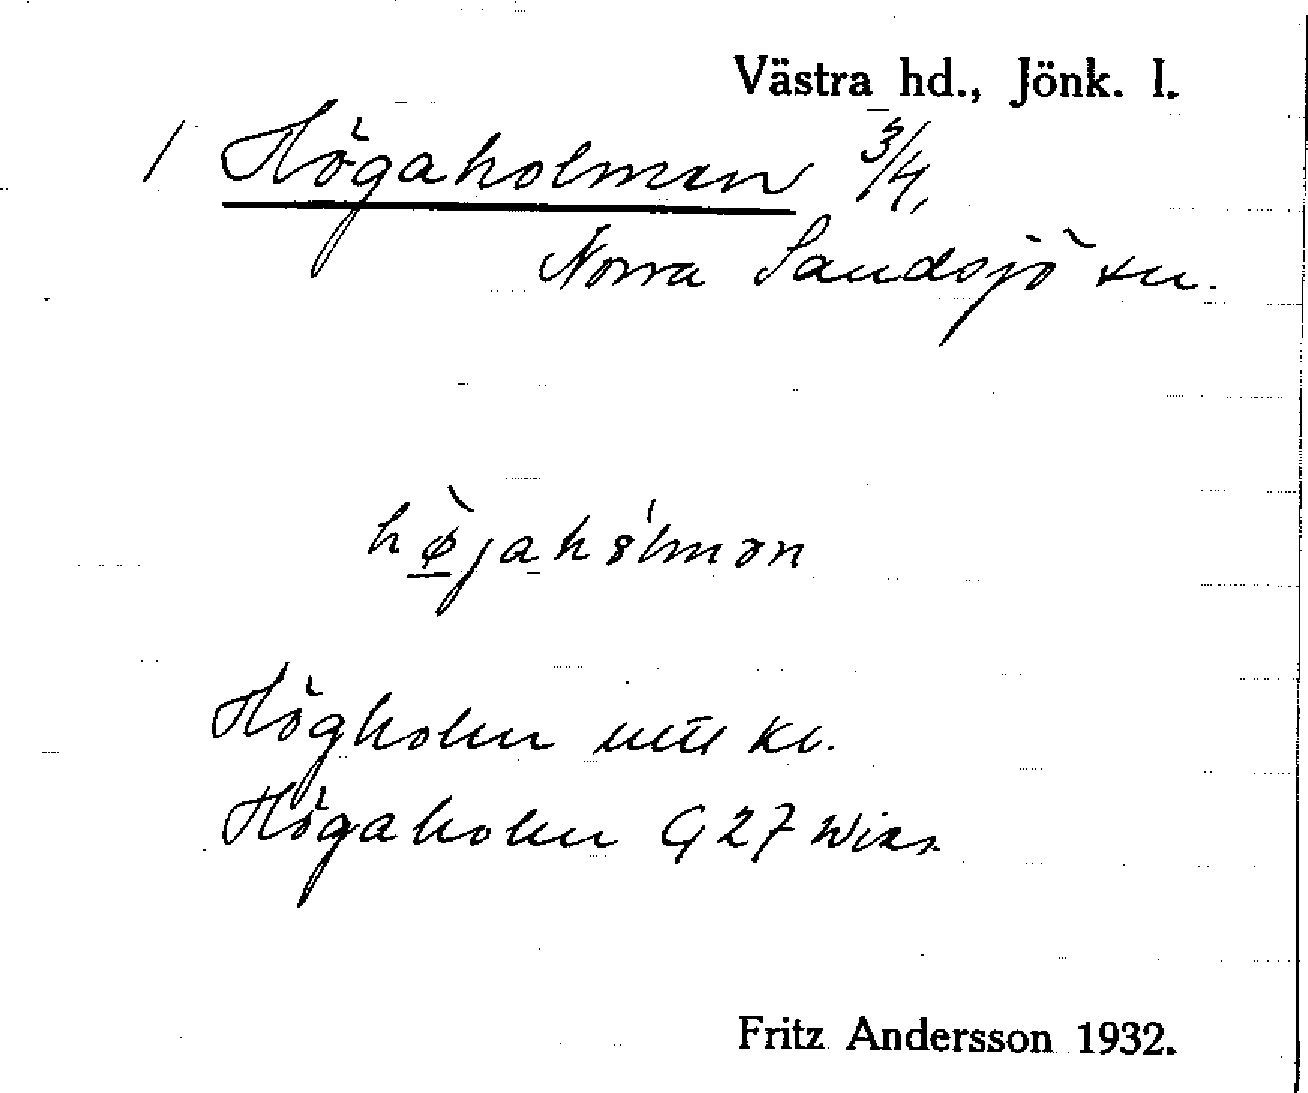 Västra hd., Jönk. l.
1 Högaholman 3/4,
Norra Sandsjö sn.
hø̀jahólmən
Högholm
Högaholm G 27
Fritz Andersson 1932.